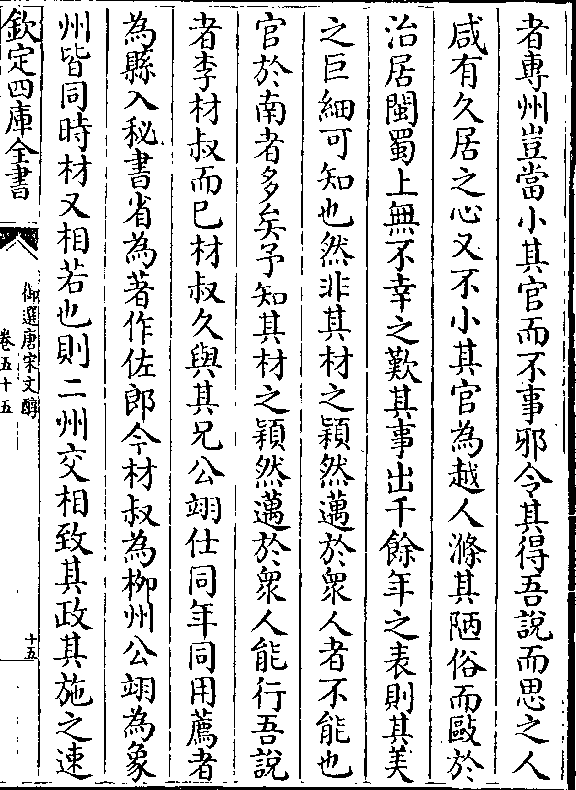 者専州豈當小其官而不事邪令其得吾說而思之人
咸有久居之心又不小其官為越人滌其陋俗而敺於
治居閩蜀上無不幸之歎其事出千餘年之表則其美
之巨細可知也然非其材之穎然邁於衆人者不能也
官於南者多矣予知其材之穎然邁於衆人能行吾說
者李材叔而已材叔久與其兄公翊仕同年同用薦者
為縣入秘書省為著作佐郎今材叔為柳州公翊為象
州皆同時材又相若也則二州交相致其政其施之速
欽定四庫全書
御選唐宋文醇
卷五十五
十五